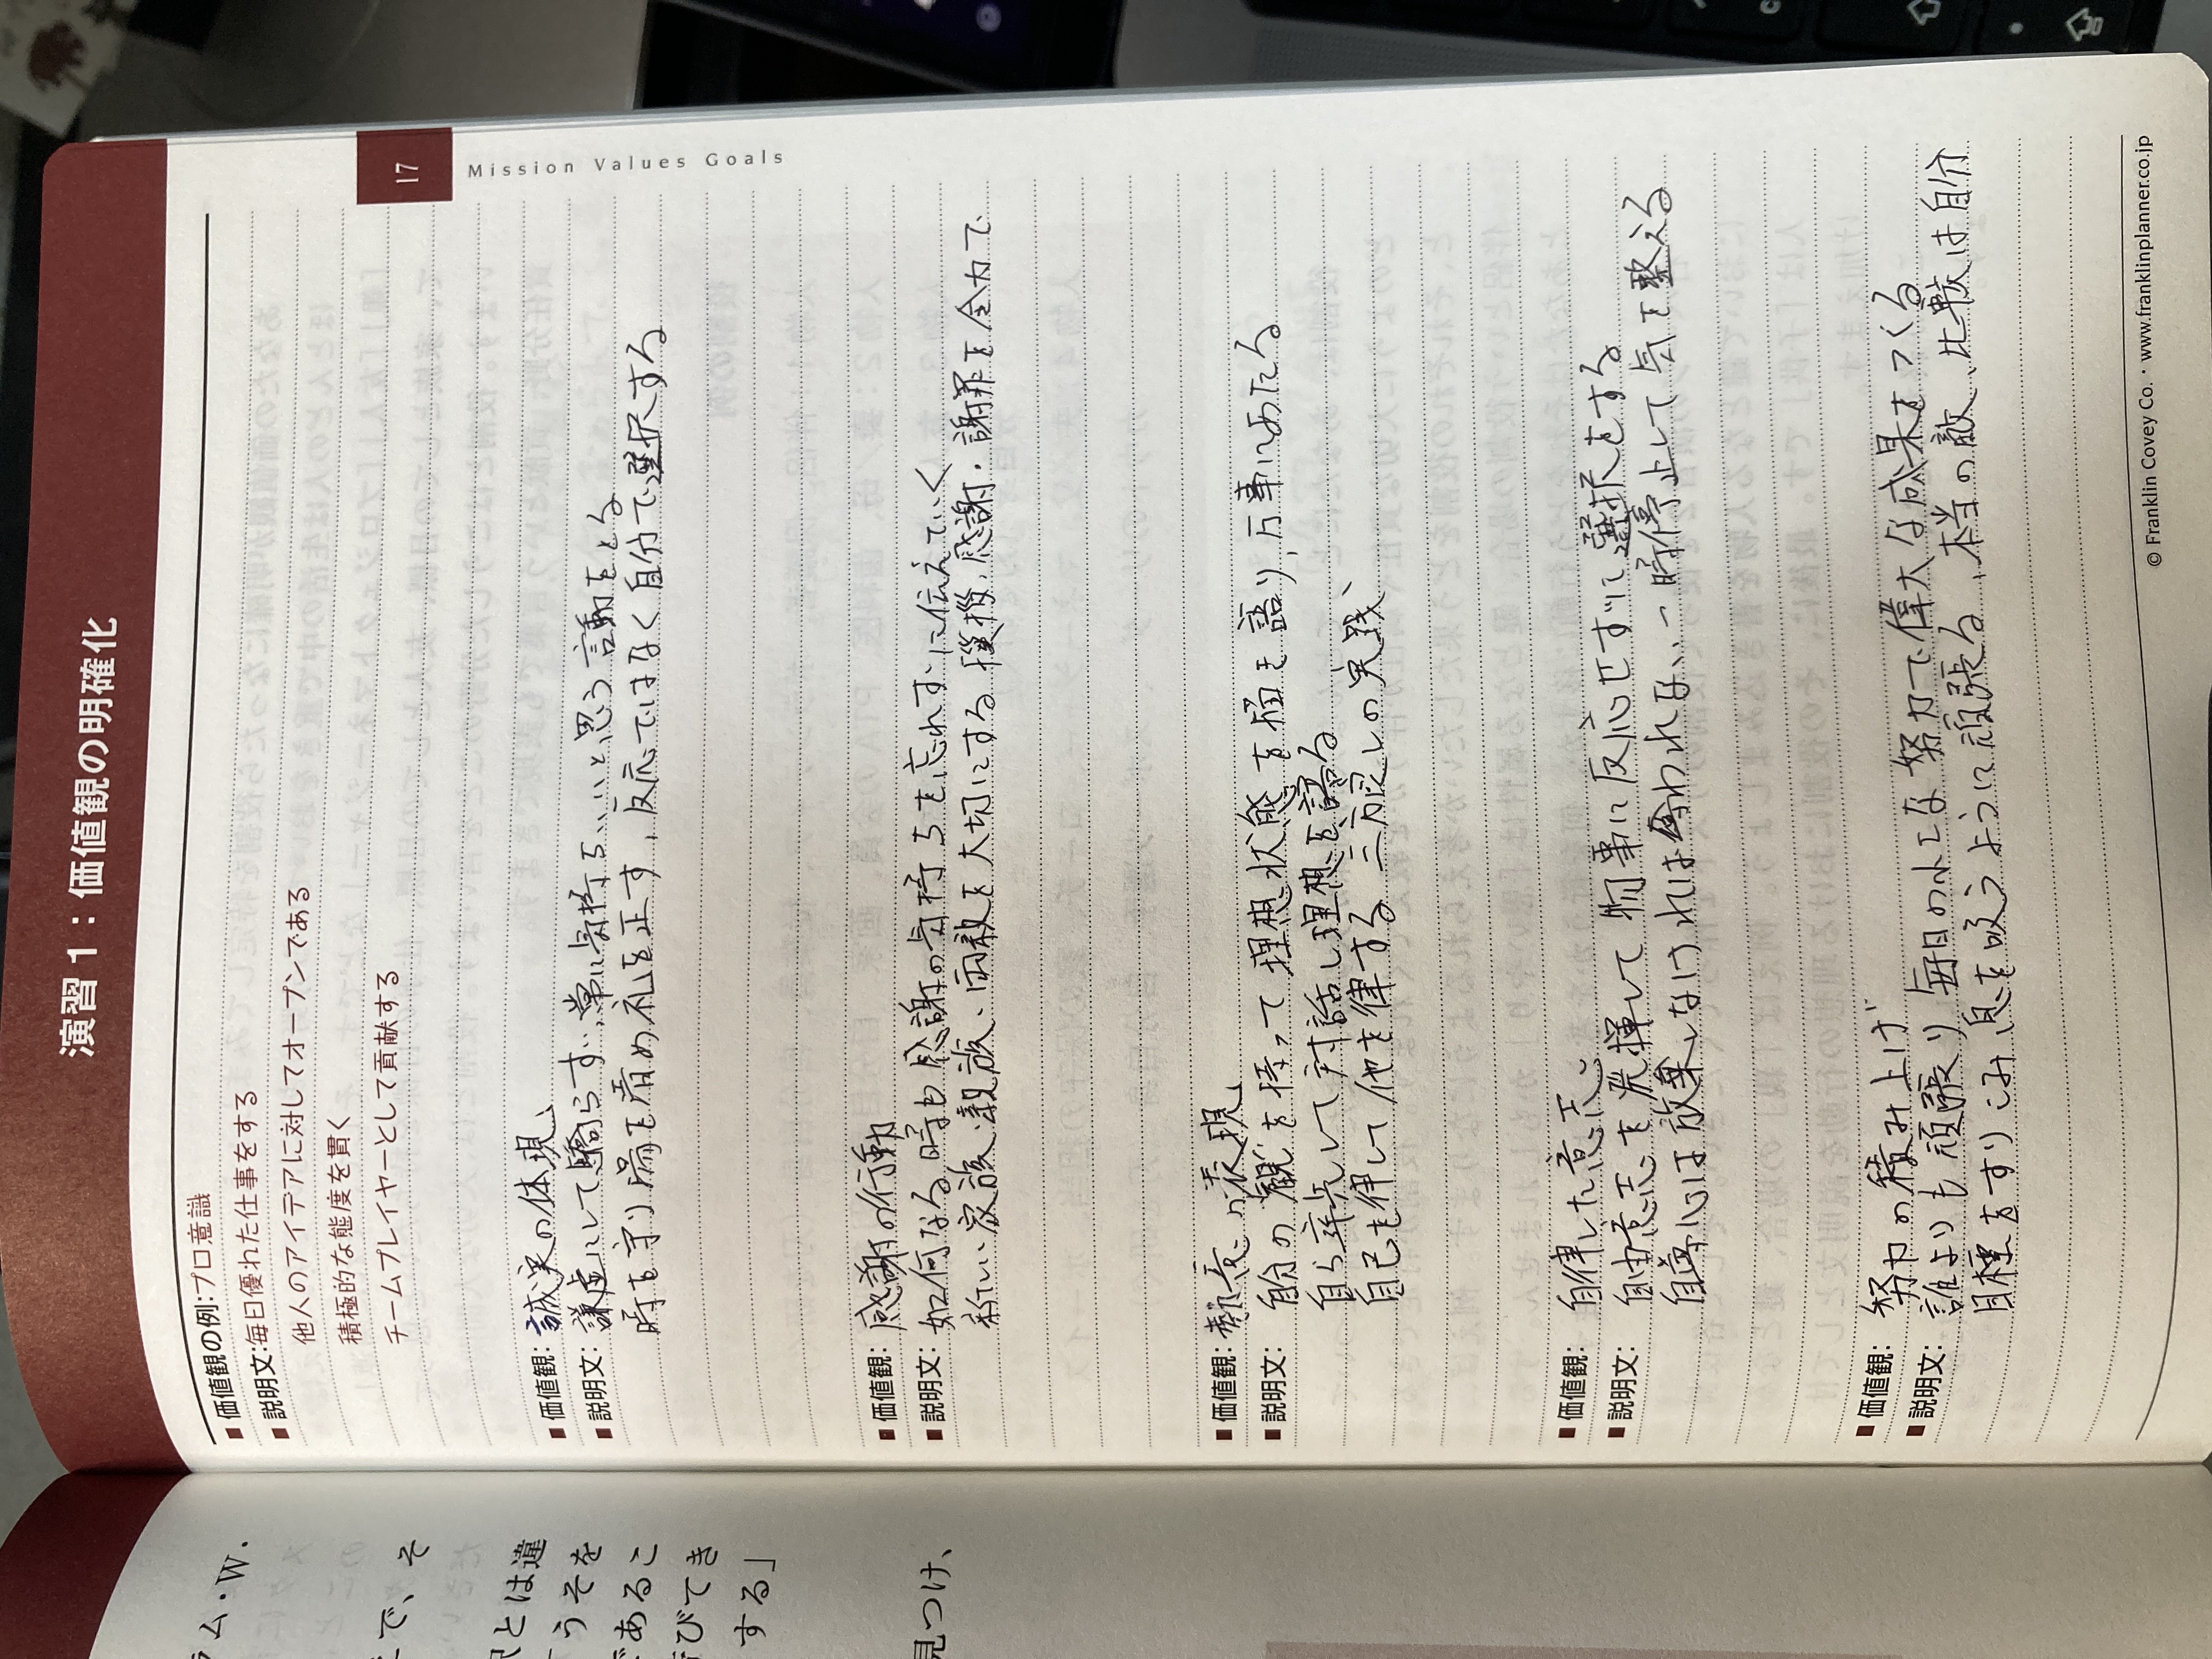 演習1：価値観の明確化
17
Mission Values Goals
■ 価値観の例:プロ意識
■ 説明文:毎日優れた仕事をする
他人のアイデアに対してオープンである
積極的な態度を貫く
チームプレイヤーとして貢献する
■ 価値観: 誠実の体現
■ 説明文: 謙虚にして驕らず、常に気持ちいいと思う言動をとる
時を守り場を清め礼を正す、反応ではなく自分で選択する
■ 価値観: 感謝の行動
■ 説明文: 如何なる時も感謝の気持ちを忘れずに伝えていく
新しい家族、親族、両親を大切にする 挨拶、感謝、謝罪を全力で
■ 価値観: 熱意の表現
■ 説明文: 自分の観を持って理想状態を描き語り、万事にあたる
自ら率先して対話し理想を語る
自己を律して他を律する 三方良しの実践、
■ 価値観: 自律した意志
■ 説明文: 自由意志を発揮して物事に反応せずに選択をする
自尊心は放棄しなければ奪われない、一時停止して気を整える
■ 価値観: 努力の積み上げ
■ 説明文: 誰よりも頑張り毎日の小さな努力で偉大な成果をつくる
目標をすりこみ息を吸うように頑張る、本当の敵、比較は自分
© Franklin Covey Co.・www.franklinplanner.co.jp
ラム・W.
で、そ
択とは違
うそを
であるこ
びてき
する」
見つけ、